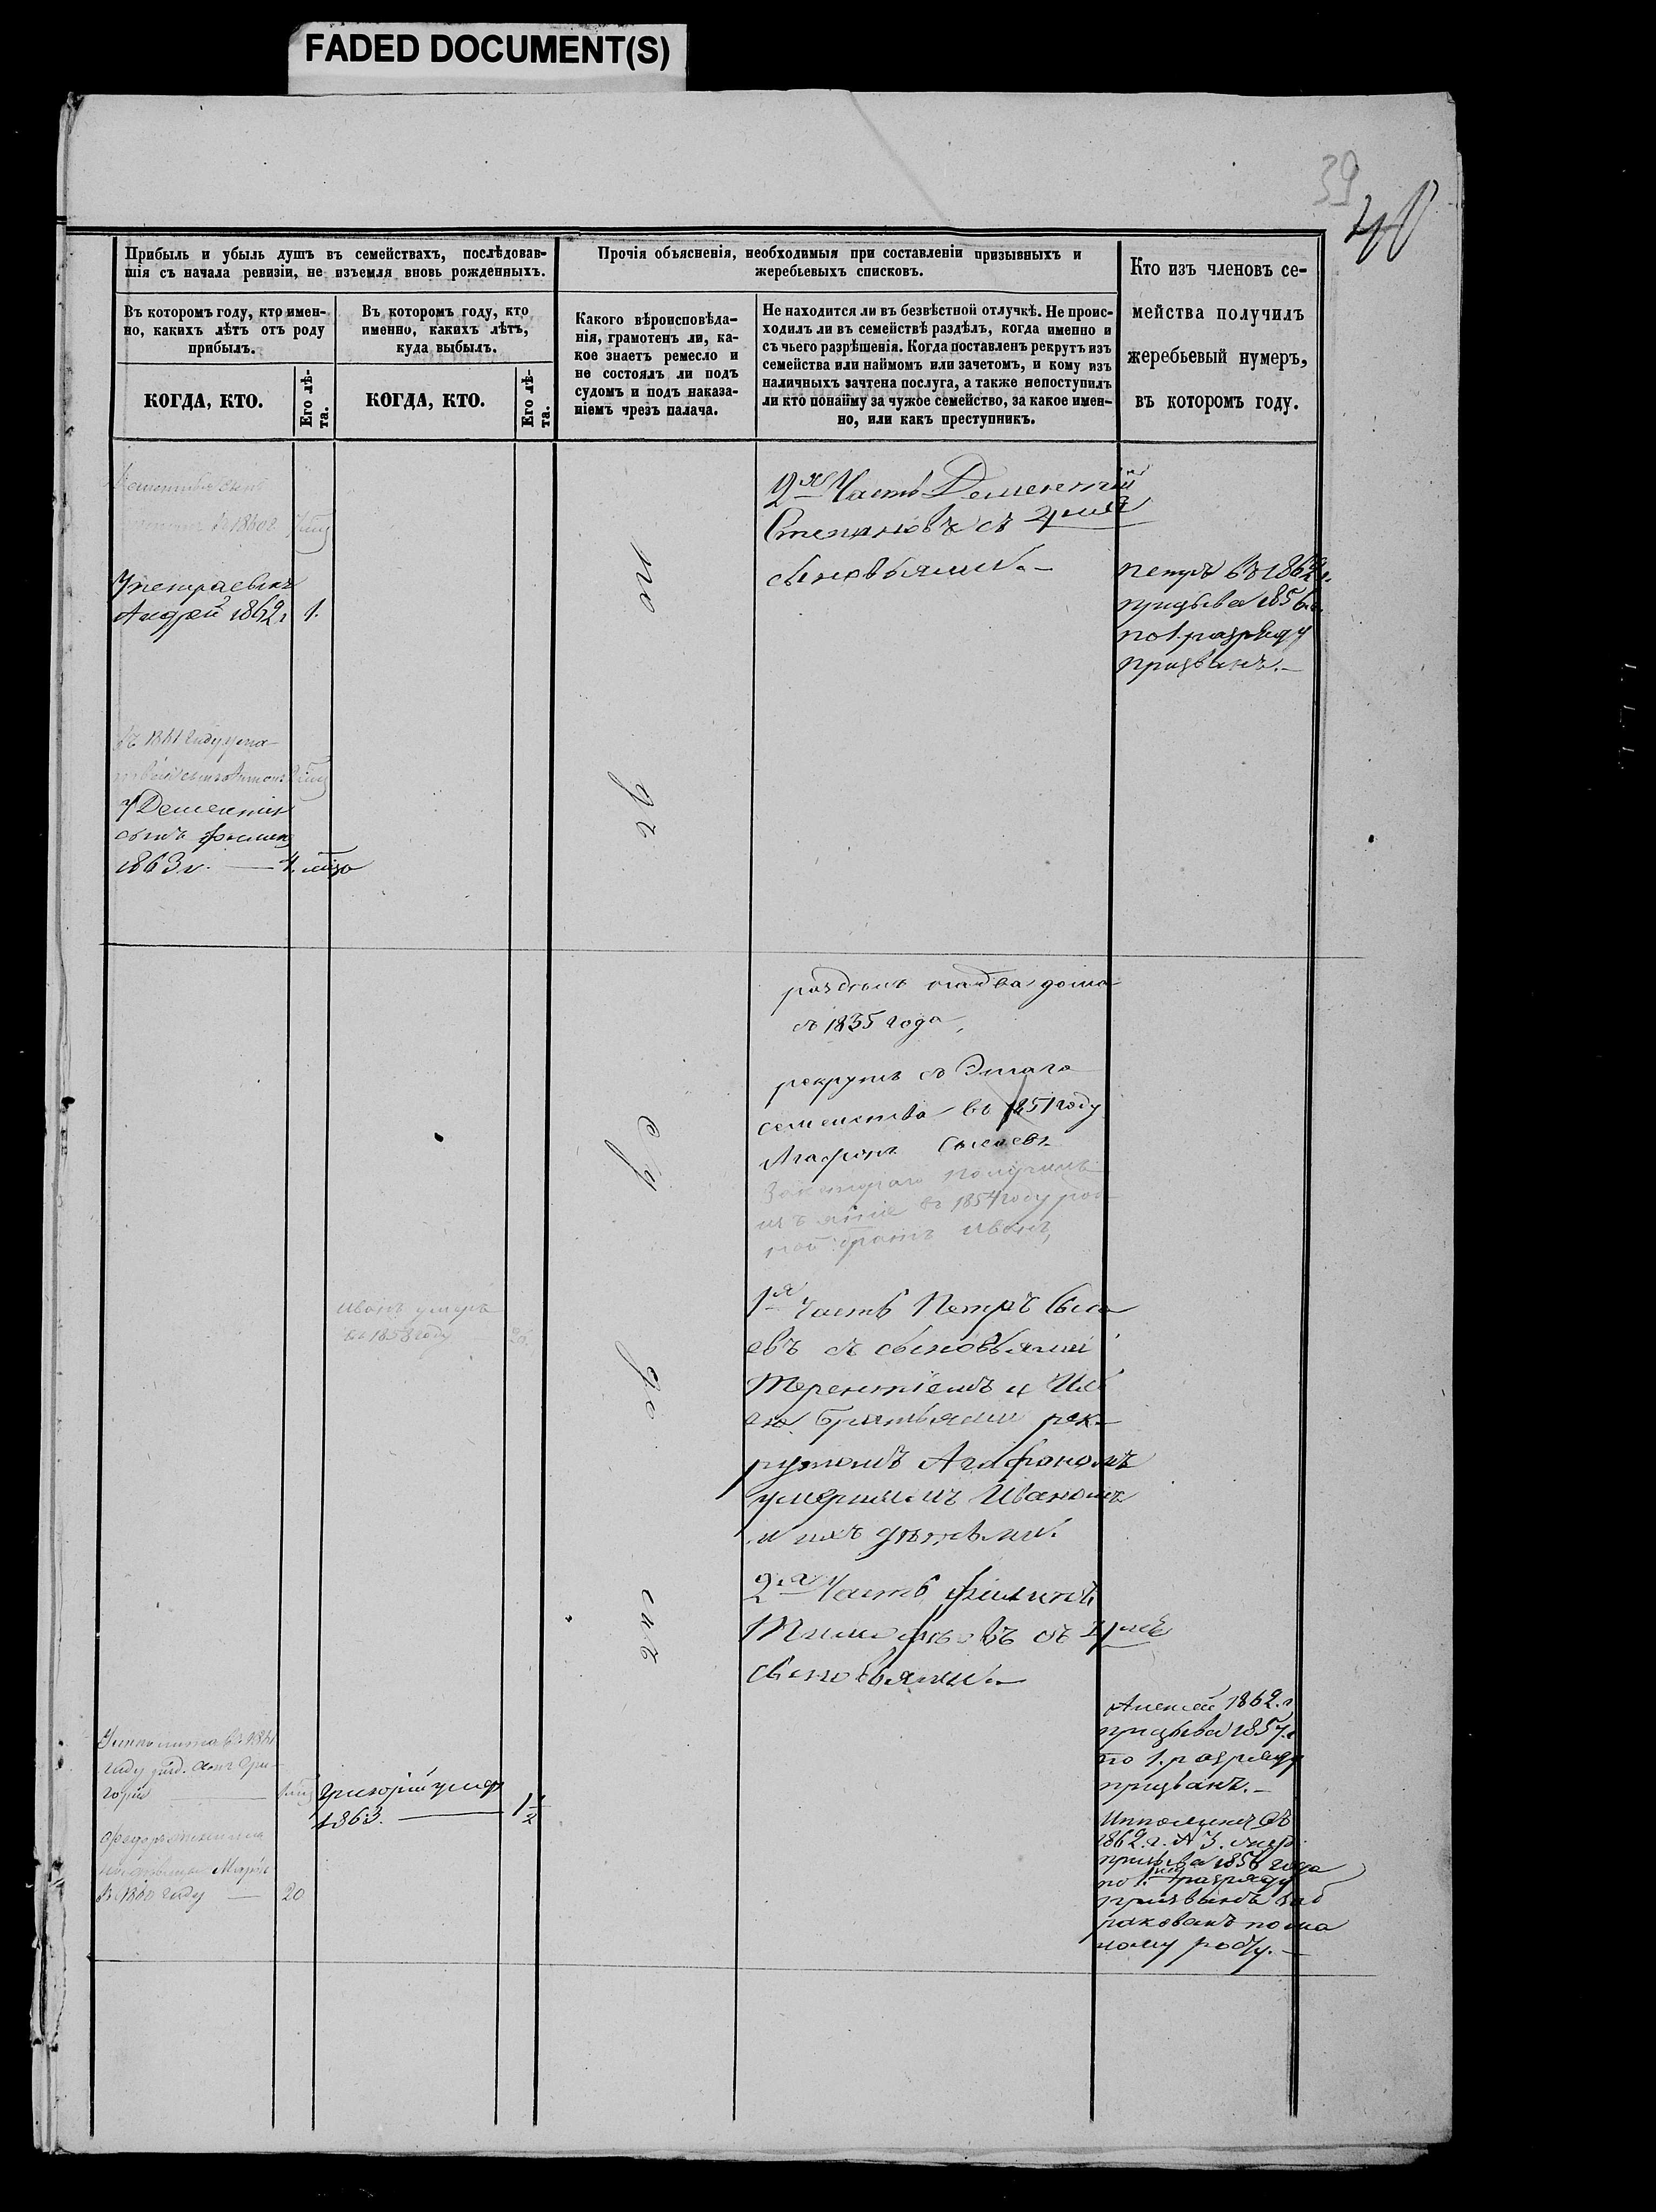 FADED DOCUMENT(S)
39
40
Прибыль и убыль душъ въ семействахъ, послѣдовав-
шія съ начала ревизіи, не изъемля вновь рожденныхъ.
Прочія объясненія, необходимыя при составленіи призывныхъ и
жеребьевыхъ списковъ.
Кто изъ членовъ се-
мейства получилъ
жеребьевый нумеръ,
въ которомъ году.
Въ которомъ году, кто имен-
но, какихъ лѣтъ отъ роду
прибылъ.
Въ которомъ году, кто
именно, какихъ лѣтъ,
куда выбылъ.
Какого вѣроисповѣда-
нія, грамотенъ ли, ка-
кое знаетъ ремесло и
не состоялъ ли подъ
судомъ и подъ наказа-
ніемъ чрезъ палача.
Не находится ли въ безвѣстной отлучкѣ. Не проис-
ходилъ ли въ семействѣ раздѣлъ, когда именно и
съ чьего разрѣшенія. Когда поставленъ рекрутъ изъ
семейства или наймомъ или зачетомъ, и кому изъ
наличныхъ зачтена послуга, а также непоступилъ
ли кто понайму за чужое семейство, за какое имен-
но, или какъ преступникъ.
КОГДА, КТО.
Его лѣ-
та.
КОГДА, КТО.
Его лѣ-
та.
сынъ
1860г.
У петра сынъ
Андрей 1862г 1.
въ 1861 году
У Дементія
сынъ
1863г. — 4. мѣс
по
дъ
су
до
мъ
2я Часть Дементій
Степановъ съ 4мя
сыновьями. —
петръ въ 1862г.
призыва 1856г.
по 1. разряду
призванъ. —
раздѣлъ на два дома
съ 1835 года,
рекрутъ съ Этаго
семейства въ 1851 году
Агафонъ Сысоевъ
За котораго получилъ
въ 1854 году род
ной братъ Иванъ,
Иванъ умеръ
въ 1858 году
1я Часть Петръ Сысо
евъ съ сыновьями
Терентіемъ и
его братьями рек-
рутомъ Агафономъ
умершимъ Иваномъ
и ихъ дѣтьми.
2я Часть Филипъ
съ 4мя
сыновьями. —
Алексей 1862. г
призыва 1857. г
по 1. разряду
призванъ. —
въ 1861
году рожд. сынъ Гри-
горій — 1
Григорій умеръ
1863. — 1½
Федоръ
въ 1860 году — 20
Ипполитъ въ
1862. г. № 3.
призыва 1856 года
по 1. разряду
призванъ заб
ракованъ по ма
лому росту. —